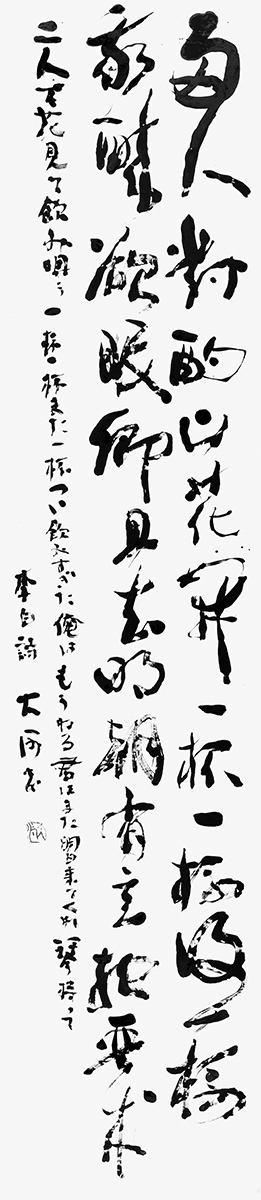 両人對酌山花開一杯一杯復一杯
我醉欲眠卿且去明朝有意抱琴来
二人で花見て飲み唄う一杯一杯また一杯つい飲みすぎた俺はもうねる君はまた明日来てくれ琴持って
李白詩 大河書